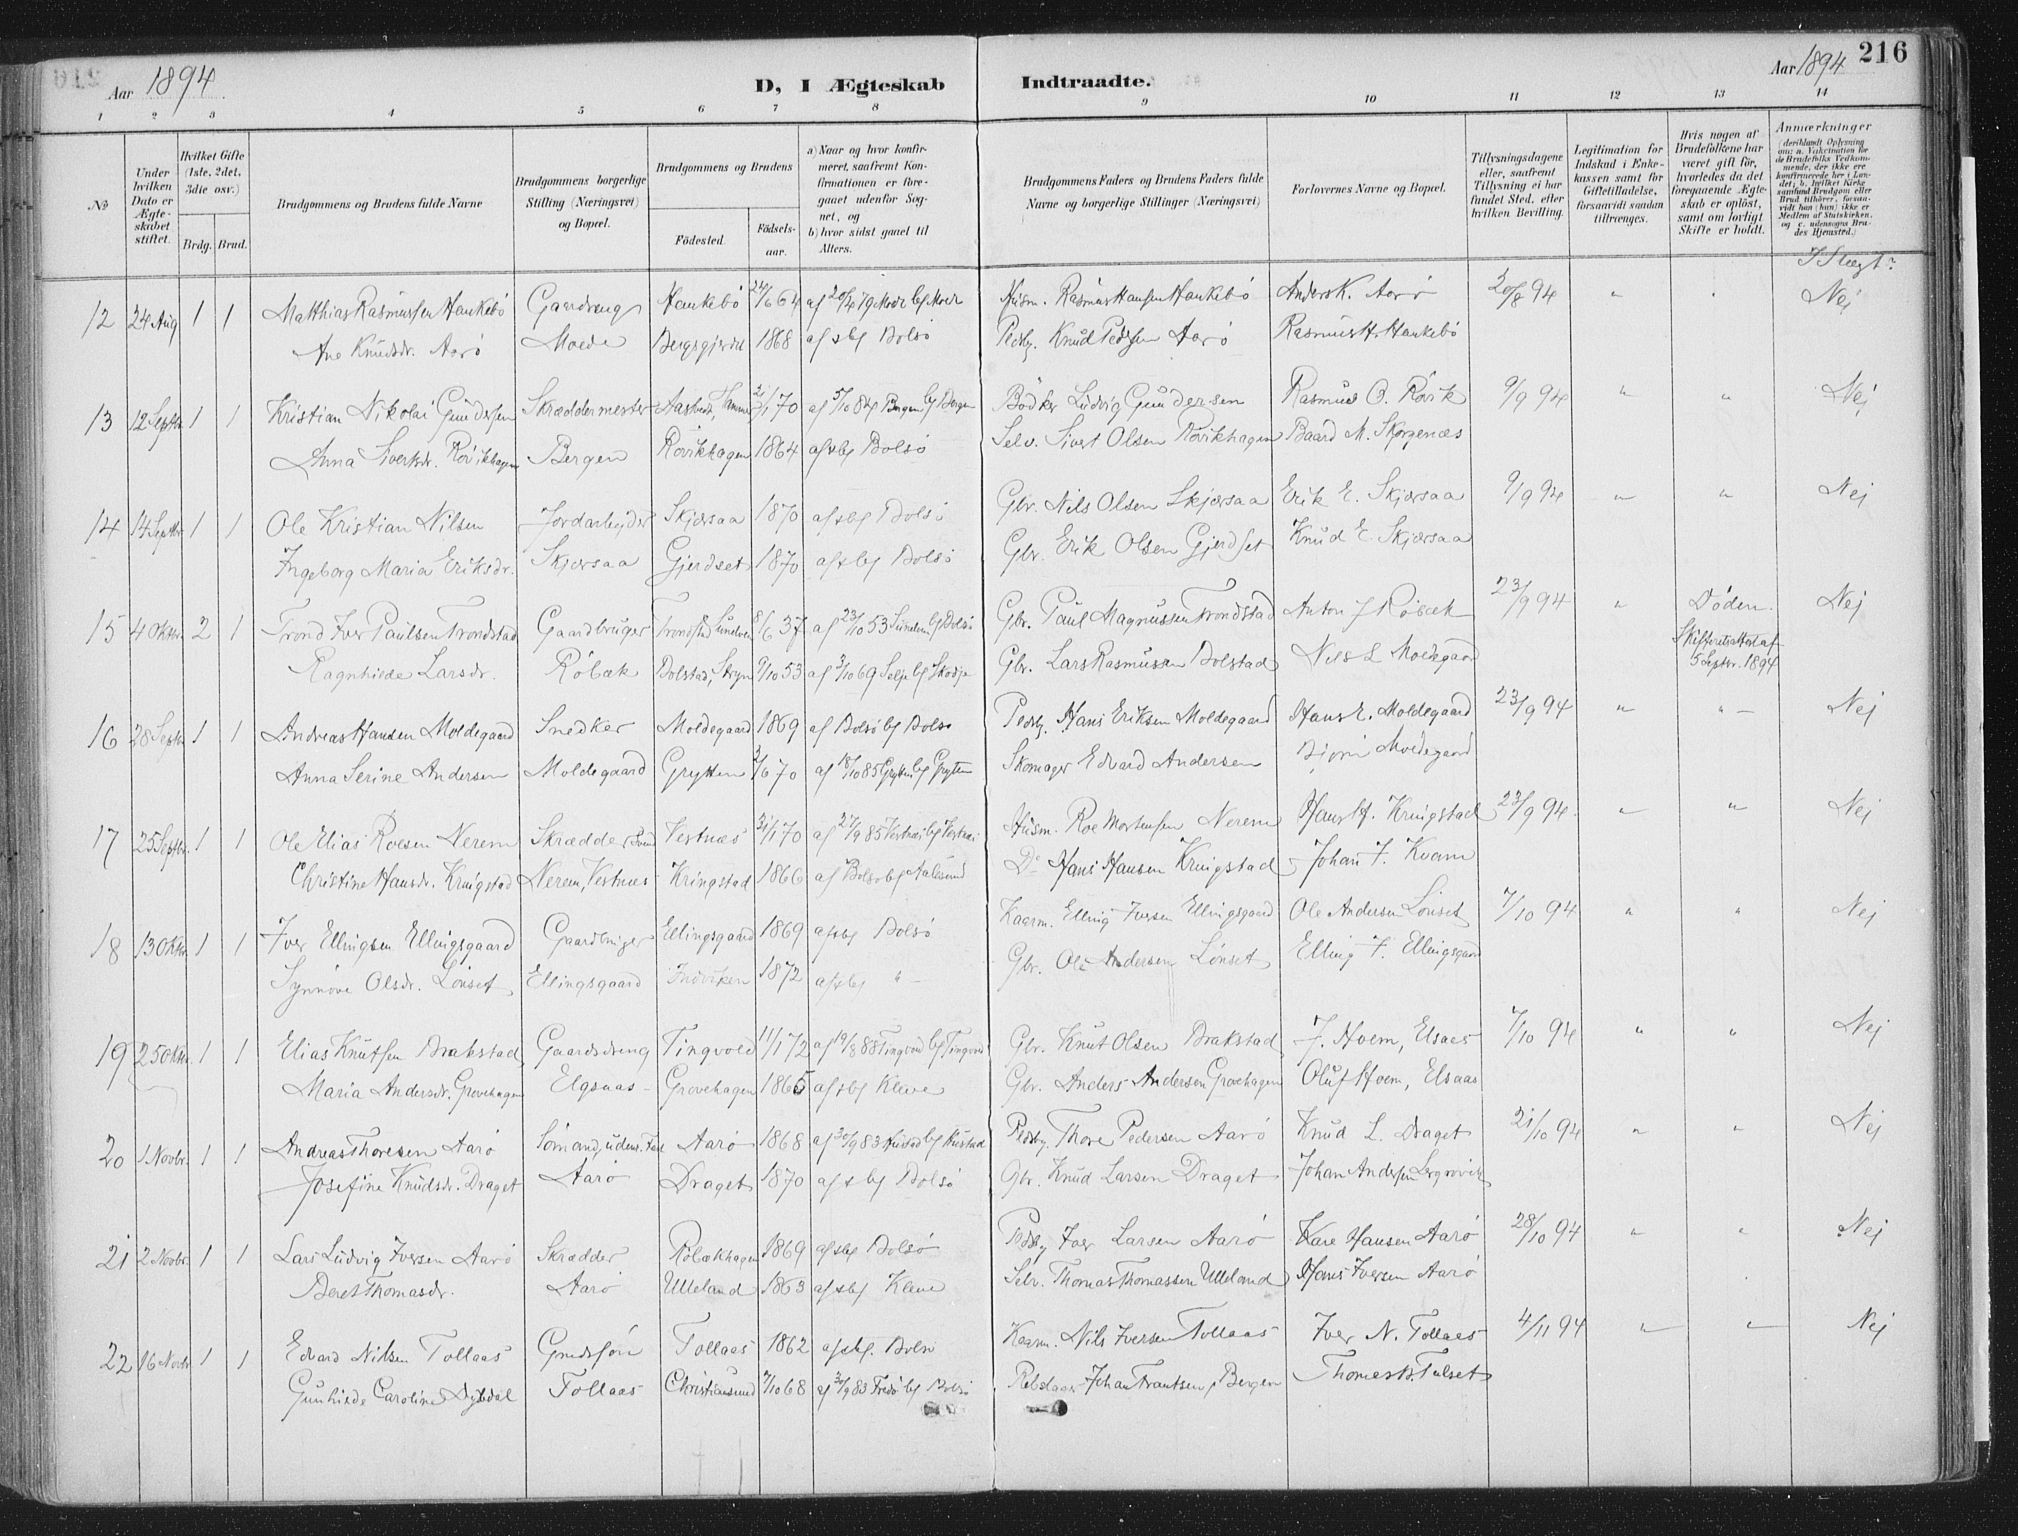 Aar 1894.
D, I Ægteskab Indtraadte.
Aar 1894 216
1 2 3 4 5 6 7 8 9 10 11 12 13 14
No
Under hvilken Dato er Ægteskabet stiftet.
Hvilket Gifte (1ste, 2det, 3die osv.)
Brdg. Brud.
Brudgommens og Brudens fulde Navne
Brudgommens borgerlige Stilling (Næringsvei) og Bopæl.
Brudgommens og Brudens
Fødested. Fødselsaar.
a) Naar og hvor konfirmeret, saafremt Konfirmationen er foregaaet udenfor Sognet, og
b) hvor sidst gaaet til Alters.
Brudgommens Faders og Brudens Faders fulde Navne og borgerlige Stillinger (Næringsvei)
Forlovernes Navne og Bopæl.
Tillysningsdagene eller, saafremt Tillysning ei har fundet Sted, efter hvilken Bevilling.
Legitimation for Indskud i Enkekassen samt for Giftetilladelse, forsaavidt saadan tiltrænges.
Hvis nogen af Brudefolkene har været gift før, hvorledes da det foregaaende Ægteskab er opløst, samt om lovligt Skifte er holdt.
Anmærkninger
I Slægt?
12 24 Aug 1 1 Matthias Rasmussen Haukebö Gaardreng Haukebö 24/6 64 af 20/4 79 Moer bg Moer Husm. Rasmus Hansen Haukebö Anders K. Aarö 20/8 94 " Nej
Ane Knudsdr. Aarö Molde Bergsgjerdet 1868 af & bg Bolsö Pedsbg. Knud Pedersen Aarö Rasmus H. Haukebö
13 12 Septbr 1 1 Kristian Nikolai Gundersen Skræddermester 21/1 70 af 5/10 84 Bergen bg Bergen Bödker Ludvig Gundersen Rasmus O. Rövik 9/9 94 " " Nej
Anna Sivertsdr. Rövikhagen Bergen Rövikhagen 1864 af & bg Bolsö Selv. Sivert Olsen Rövikhagen Baard M. Skorgenæs
14 14 Septbr 1 1 Ole Kristian Nilsen Jordarbeider Skjærsaa 1870 af & bg Bolsö Gbr. Nils Olsen Skjærsaa Erik E. Skjærsaa 9/9 94 " " Nej
Ingeborg Maria Eriksdr. Skjærsaa Gjerdset 1870 af & bg Bolsö Gbr. Erik Olsen Gjerdset Knud E. Skjærsaa
15 4 Oktbr. 2 1 Trond Iver Paulsen Trondstad Gaardbruger Trondstad 8/6 37 af 23/10 53 bg Bolsö Gbr. Paul Magnussen Trondstad Anton J Röbæk 23/9 94 " Döden. Nej
Skifteretsattest af 5 Septbr. 1894
Ragnhilde Larsdr. Röbæk Bolstad, Stryn 9/10 53 af 3/10 69 Selje bg Skodje Gbr. Lars Rasmussen Bolstad Nils L Moldegaard
16 28 Septbr 1 1 Andreas Hansen Moldegaard Snedker Moldegaard 1869 af Bolsö bg Bolsö Pedsbg. Hans Eriksen Moldegaard Hans E. Moldegaard 23/9 94 " " Nej
Anna Serine Andersen Moldegaard Grytten 2/6 70 af 18/10 85 Grytten bg Grytten Skomager Edvard Andersen Björn Moldegaard
17 25 Septbr. 1 1 Ole Elias Roesen Nerem Skrædder Vestnæs 31/1 70 af 27/9 85 Vestnæs bg Vestnæs Husm. Roe Mortensen Nerem Hans H. Kringstad 23/9 94 " " Nej
Christine Hansdr. Kringstad Nerem, Vestnæs Kringstad 1866 af Bolsö bg Aalesund Do Hans Hansen Kringstad Johan J. Kvam
18 13 Oktbr. 1 1 Iver Ellingsen Ellingsgaard Gaardbruger Ellingsgaard 1869 af & bg Bolsö Kaarm. Elling Iversen Ellingsgaard Ole Andersen Lönset 7/10 94 " " Nej
Synnöve Olsdr. Lönset Ellingsgaard Indviken 1872 af & bg " Gbr. Ole Andersen Lönset Elling I. Ellingsgaard
19 25 Oktbr. 1 1 Elias Knutsen Brakstad Gaardsdreng Tingvold 11/1 72 af 19/8 88 Tingvold bg Tingvold Gbr. Knut Olsen Brakstad J. Hoem, Elsaas 7/10 94 " " Nej
Maria Andersdr. Grovehagen Elgsaas Grovehagen 1865 af & bg Kleve Gbr. Anders Andersen Grovehagen Oluf Hoem, Elsaas
20 1 Novbr. 1 1 Andreas Thoresen Aarö Sömand, udens. Fart Aarö 1868 af 30/9 83 Hustad bg Hustad Pedsbg. Thore Pedersen Aarö Knud L. Draget 21/10 94 " " Nej
Josefine Knudsdr. Draget Aarö Draget 1870 af & bg Bolsö Gbr. Knud Larsen Draget Johan Andersen
21 2 Novbr. 1 1 Lars Ludvig Iversen Aarö Skrædder Röbækhagen 1869 af & bg Bolsö Pedsbg Iver Larsen Aarö Kare Hansen Aarö 28/10 94 " " Nej
Beret Thomasdr. Aarö Ulleland 1863 af & bg Kleve Selv. Thomas Thomassen Ulleland Hans Iversen Aarö
22 16 Novbr 1 1 Edvard Nilsen Tollaas Tollaas 1862 af & bg. Bolsö Kaarm. Nils Iversen Tollaas Iver N. Tollaas 4/11 94 " " Nej
Gunhilde Caroline Dybdal Tollaas Christiansund 7/10 68 af 30/9 83 Fredö bg Bolsö Johan Frantsen, Bergen Thomas B. Tulset